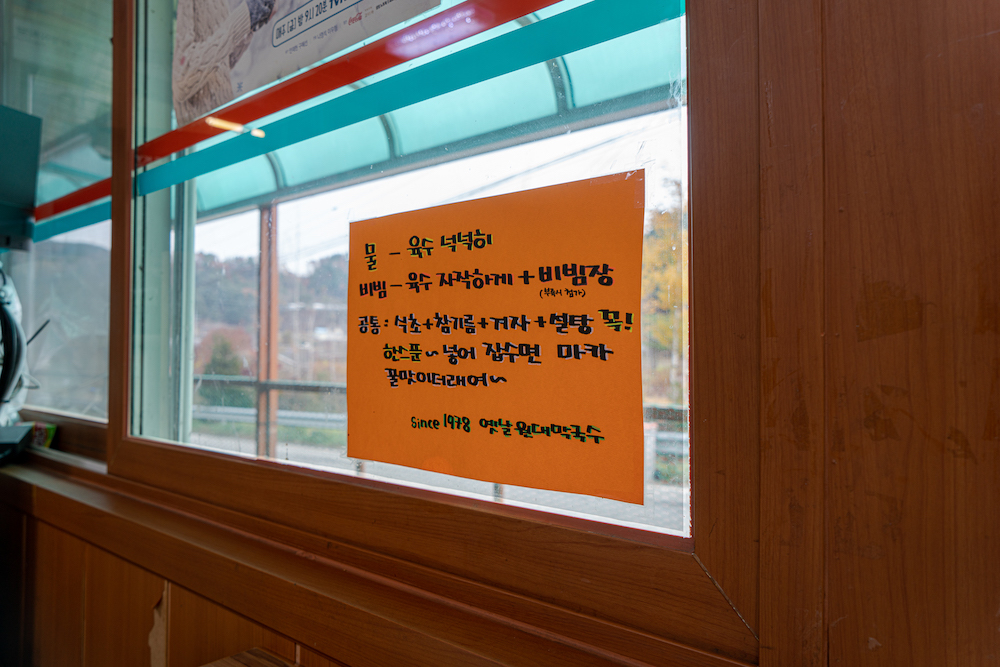 매주 (금) 밤 9시 20분
물 - 육수 넉넉히
비빔 - 육수 자작하게 + 비빔장
(부족시 첨가)
공통 : 식초+참기름+겨자+설탕 꼭!
한스푼~ 넣어 잡수면 마카
꿀맛이더래여~
Since 1978 옛날원대막국수